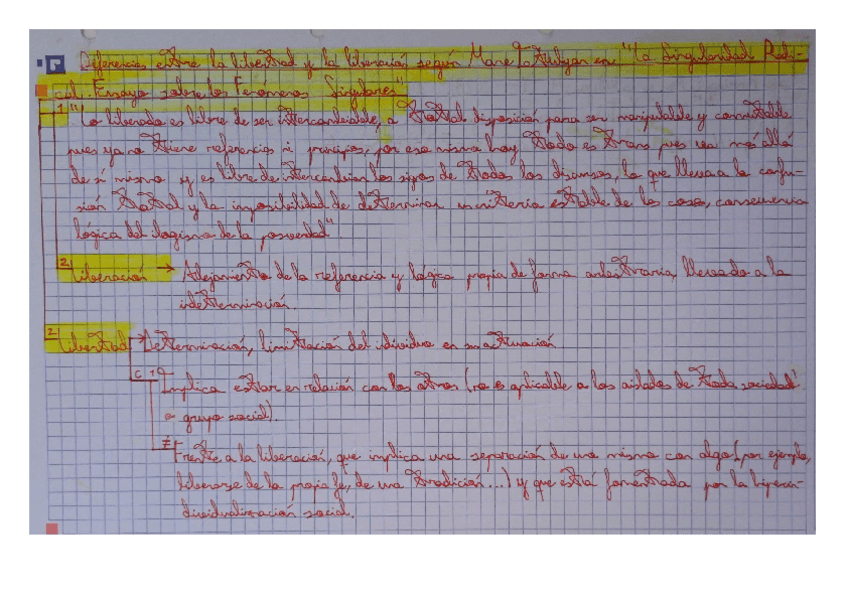 Diferencias entre la libertad y la liberación según Marc en "La Singularidad Radi-
cal. Ensayo sobre los Fenómenos Singulares"
1 "Lo liberado es libre de ser intercambiable, a total disposición para ser manipulable y conmutable
pues ya no tiene referencias ni principios, por eso mismo hoy todo es trans pues va más allá
de sí mismo y es libre de intercambiar los signos de todos los discursos, lo que lleva a la confu-
sión total y la imposibilidad de determinar un criterio estable de las cosas, consecuencia
lógica del de la posverdad".
2 Liberación → Alejamiento de la referencia y lógica propia de forma arbitraria, llevado a la
indeterminación.
2 Libertad → Determinación, limitación del individuo en su actuación.
Implica estar en relación con los otros (no es aplicable a los aislados de toda sociedad
o grupo social).
≠ Frente a la liberación, que implica una separación de uno mismo con algo (por ejemplo,
liberarse de la propia fe, de una tradición...) y que está fomentada por la hiperin-
dividualización social.